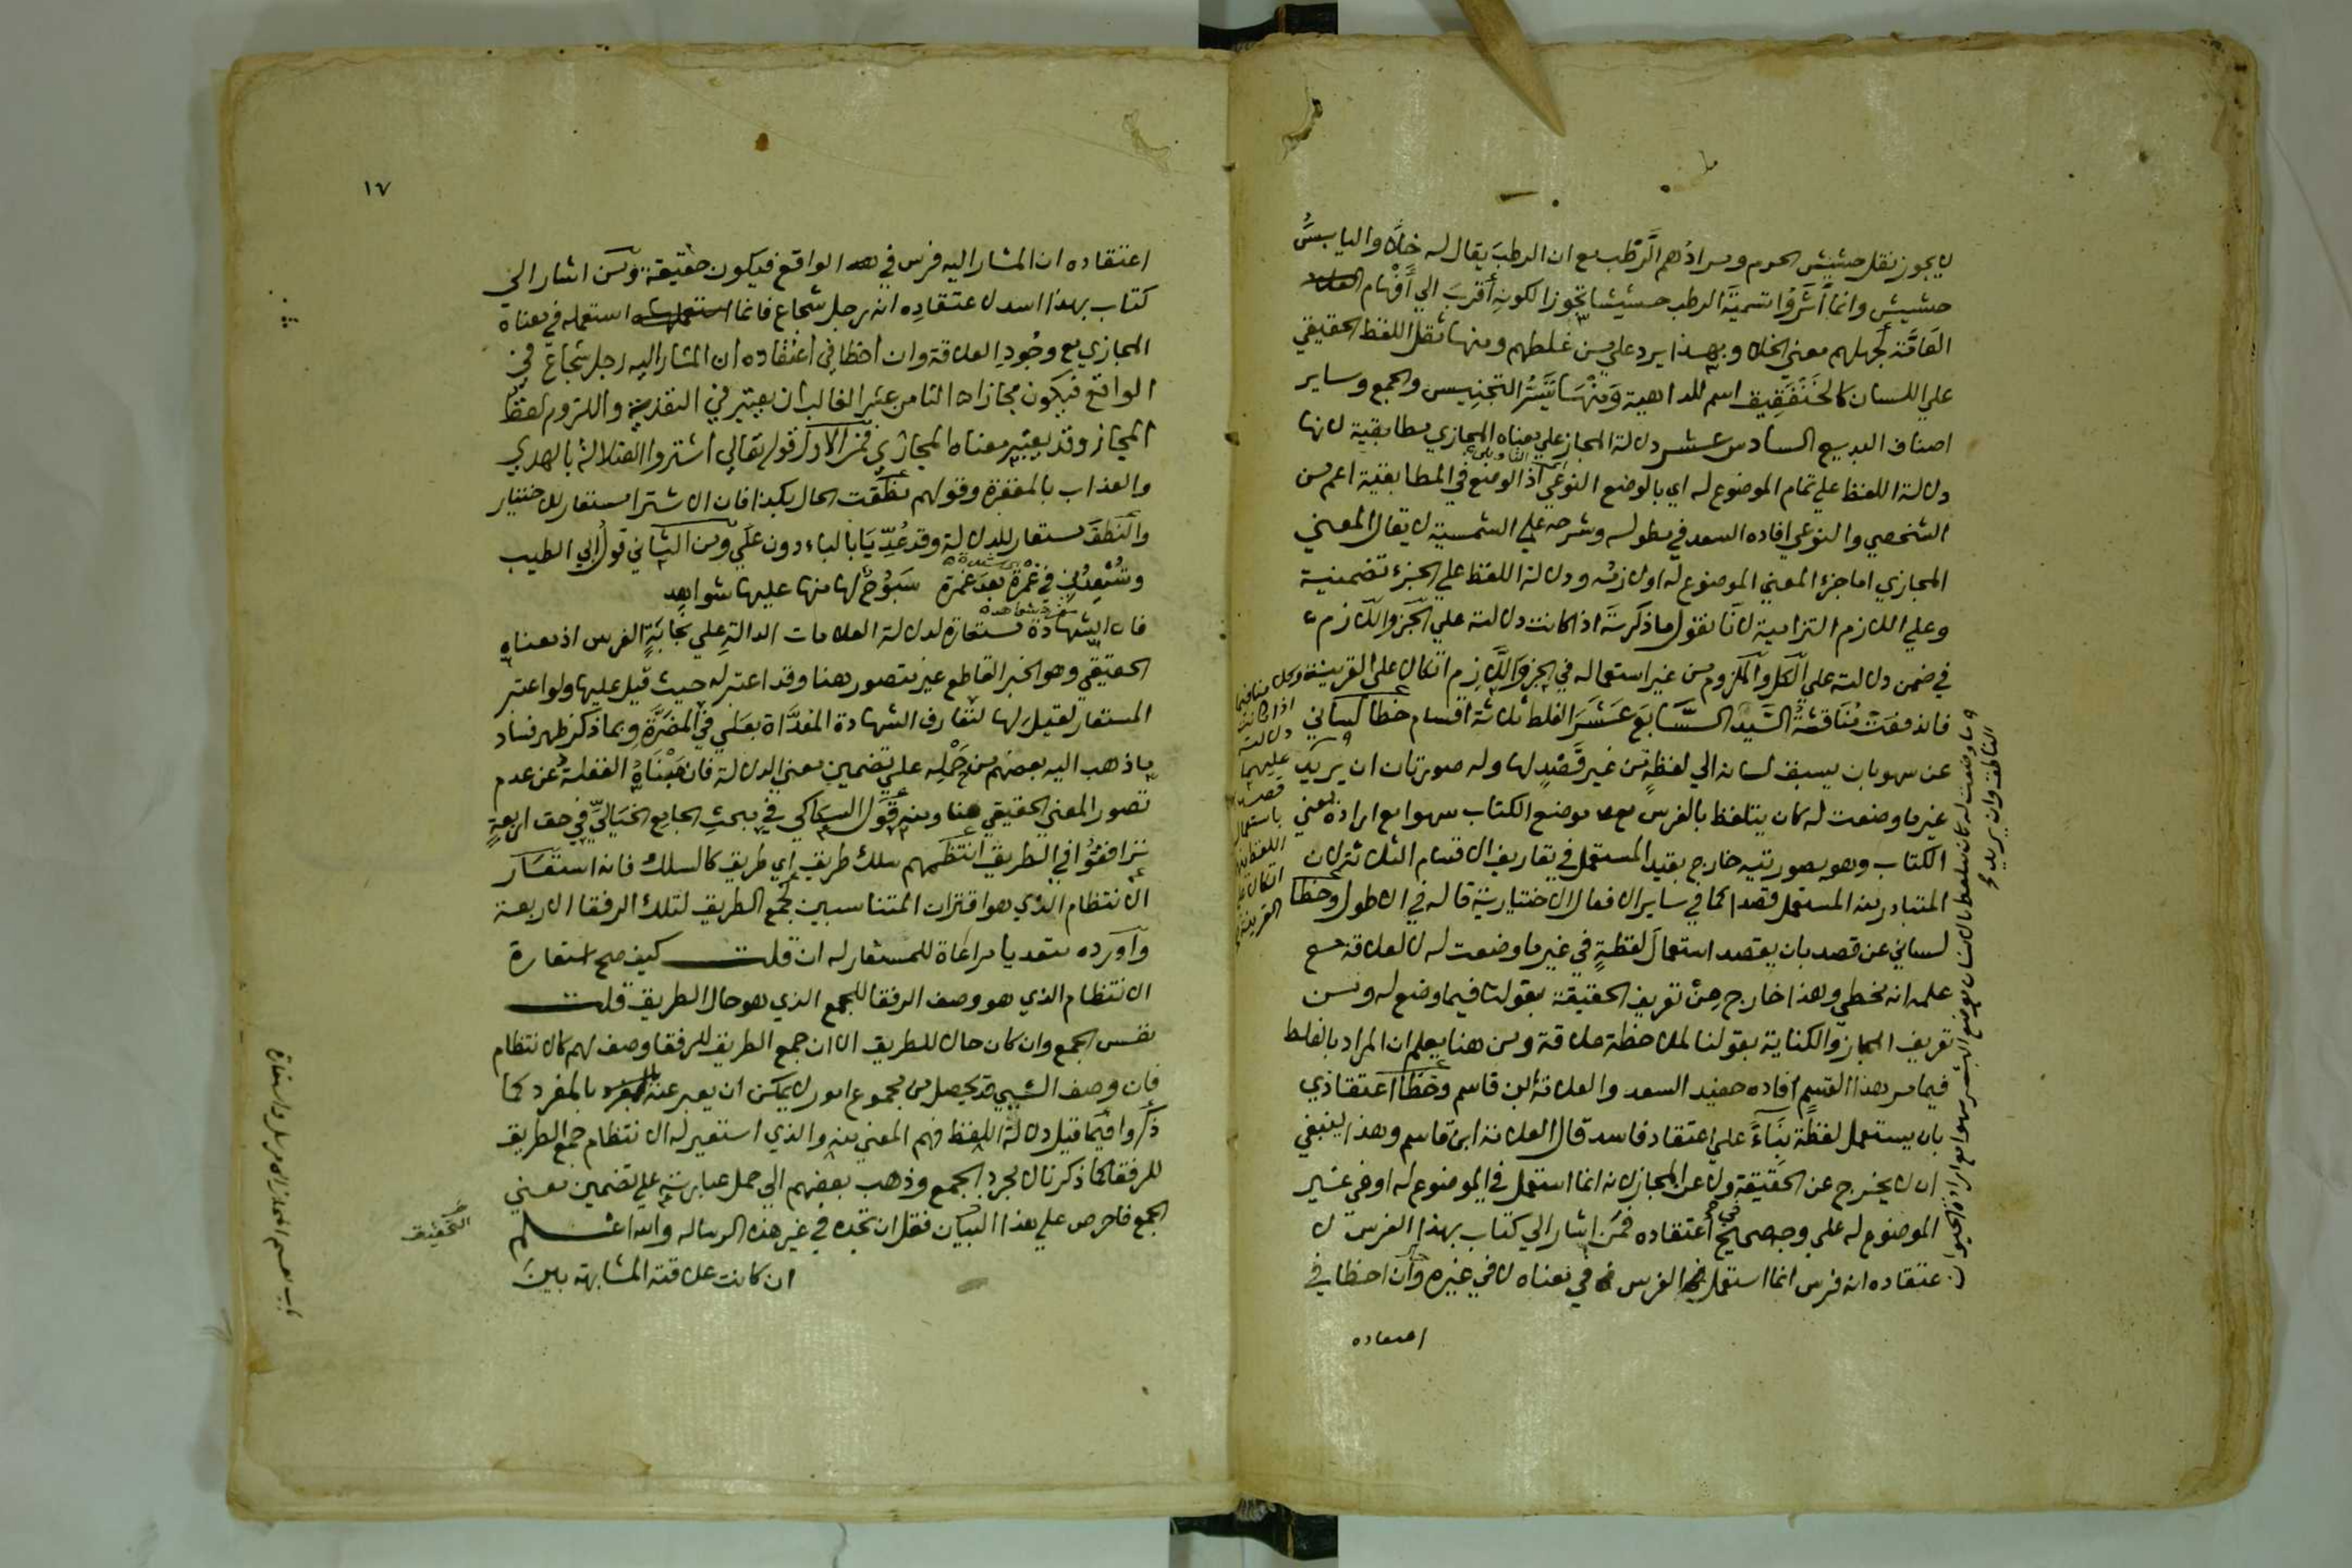 لا يجوز نقل حشيش الحرم ومرادهم الرَّطْب مع ان الرطبَ يقال له خلًا واليابسُ
حشيش وانما آثرُوا تسميةَ الرطب حشيشا تجوزا لكونهِ أقربَ الي أَفْهام
العَامَّة لجهلهم معني الخلا وبهذا يرد علي من غلطهم ومنها ثقل اللفظ الحقيقي
علي اللسان كالخَنْفَقِيق اسم للداهية وَمنْهَا تَيَسُّرُ التجنيس والجمع وساير
اصناف البديع السادس عشر دلالة المجاز علي معناه المجازي مطابقية لانها
دلالة اللفظ علي تمام الموضوع له اي بالوضع النوعي اذ الوضع في المطابقية اعم من
الشخصي والنوعي افاده السعد في مطوله وشرحه علي الشمسية لا يقال المعني
المجازي اما جزء المعني الموضوع له او لازمه ودلالة اللفظ علي الجزء تضمنية
وعلي اللازم التزامية لانا نقول ما ذكرته اذا كانت دلالته علي الجزء واللازم
في ضمن دلالته علي الكل والملزوم من غير استعماله في الجزء واللازم اتكالا علي القرينة
فاندفعت مُنَاقشةُ السَّيِّد السَّابعَ عَشَرَ الغلط ثلاثة اقسام خطأ لساني
عن سهو بان يسبق لسانه الي لفظةٍ من غير قَصْدٍ لها وله صورتان ان يريد
غير ما وضعت له كان يتلفظ بالفرس موضع الكتاب سهوا مع ارادة معني
الكتاب وهو بصورتيه خارج بقيد المستعمل في تعاريف الاقسام الثلاثة لان
المتبادر منه المستعمل قصدا كما في ساير الافعال الاختيارية قاله في الاطول وخطأ
لساني عن قصد بان يقصد استعمالَ لفظةٍ في غير ما وضعت له لا لعلاقة مع
علمه انه مخطي وهذا خارج مِنْ تعريف الحقيقة بقولنا فيما وضع له ومن
تعريف المجاز والكناية بقولنا لملاحظة علاقة ومن هنا يعلم ان المراد بالغلط
فيما مر هذا القسم افاده حفيد السعد والعلامة ابن قاسم وخطأ اعتقادي
بان يستعمل لفظة بِنَاءً علي اعتقاد فاسد قال العلامة ابن قاسم وهذا ينبغي
ان لا يخرج عن الحقيقة ولا عن المجاز لانه انما استعمل في الموضوع له او في غير
الموضوع له علي وجه صحيح في اعتقاده فمن اشار الي كتاب بهذا الفرس لا
عتقاده انه فرس انما استعمل الفرس في معناه لا في غيره وان اخطا في
اعتقاده
١٧
اعتقاده ان المشار اليه فرس في الواقع فيكون حقيقة ومن اشار الي
كتاب بهذا اسد لاعتقادِه انه رجل شجاع فانما استعمله في معناه
المجازي مع وجُودِ العلاقة وان اخطا في اعتقاده ان المشار اليه رجل شجاع في
الواقع فيكون مجازا الثامن عشر الغالب ان يعتبر في التعدية واللزوم لفظ
المجاز وقد يعتبر معناه المجازي فمن الاول قوله تعالي اشتروا الضلالة بالهدي
والعذاب بالمغفرة وقولهم نطقت الحال بكذا فان الاشترا مستعار للاختيار
والنطق مستعار للدلالة وقد عُدِّيَا بالباء دون علي ومن الثاني قول ابي الطيب
وتُسْعِدُني في غَمْرة بعدَ غمرة سَبُوحٌ لها منها عليها شواهد
فان الشهادة مستعارة لدلالة العلامات الدالة علي نجابةِ الفرس اذ معناه
الحقيقي وهو الخبر القاطع غير متصور هنا وقد اعتبر له حيث قيل عليها ولو اعتبر
المستعار لقيل لها لتعارف الشهادة المعدَّاة بعلي في المضرَّةِ وبما ذكر ظهر فساد
ما ذهب اليه بعضهم من حَمْلِه علي تضمين معني الدلالة فان مَبْنَاهُ الغفلة عن عدم
تصور المعني الحقيقي هنا ومنه قَوْل السكاكي في مبحثِ الجامع الخيَاليّ في حق اربعةٍ
ترافقوُا في الطريق انتظمهم سلك طريق اي طريق كالسلك فانه استعَار
الانتظام الذي هو اقتران المتناسبين لجمع الطريق لتلك الرفقا الاربعة
وأورده متعديا مراعاة للمستعار له ان قلت كيف صح استعارة
الانتظام الذي هو وصف الرفقا للجمع الذي هو حال الطريق قلت
نفس الجمع وان كان حالا للطريق الا ان جمع الطريق للرفقا وصف لهم كالانتظام
فان وصف الشيي قد يحصل من مجموع امور لا يمكن ان يعبر عنه بالمفرد كما
ذكروا فيما قيل دلالة اللفظ فهم المعني منه والذي استعير له الانتظام جمع الطريق
للرفقا كما ذكرنا لا مجرد الجمع وذهب بعضهم الي حمل عبارته علي تضمين معني
الجمع فاحرص علي هذا البيان فقل ان تجده في غير هذه الرساله والله اعلم
ان كانت علاقته المشابهة بينَ